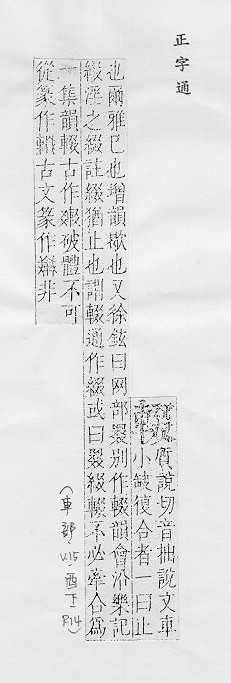 正字通
質說切音拙說文車
小缺復合者一曰止
也爾雅已也增韻歇也又徐鉉曰网部叕別作輟韻會沿樂記
綴淫之綴註綴猶止也謂輟通作綴或曰叕綴輟不必牽合爲
一集韻輟古作𨋎破體不可
從篆作輟古文篆作非
(車部 V.15,酉下 P.14)